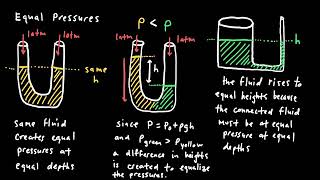 Equal Pressures
1atm 1atm
same
h
same fluid
creates equal
pressures at
equal depths
ρ < ρ
1atm 1atm
h
since P = P₀ + ρgh
and ρgreen > ρyellow
a difference in heights
is created to equalize
the pressures.
h
the fluid rises to
equal heights because
the connected fluid
must be at equal
pressure at equal
depths